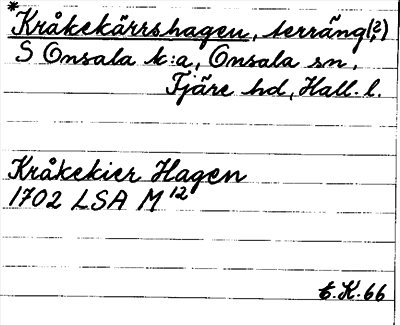 *Kråkekärrshagen, terräng(?)
S Onsala k:a, Onsala sn,
Fjäre hd, Hall. l.
Kråkekier Hagen
1702 LSA M 12
t.K.66